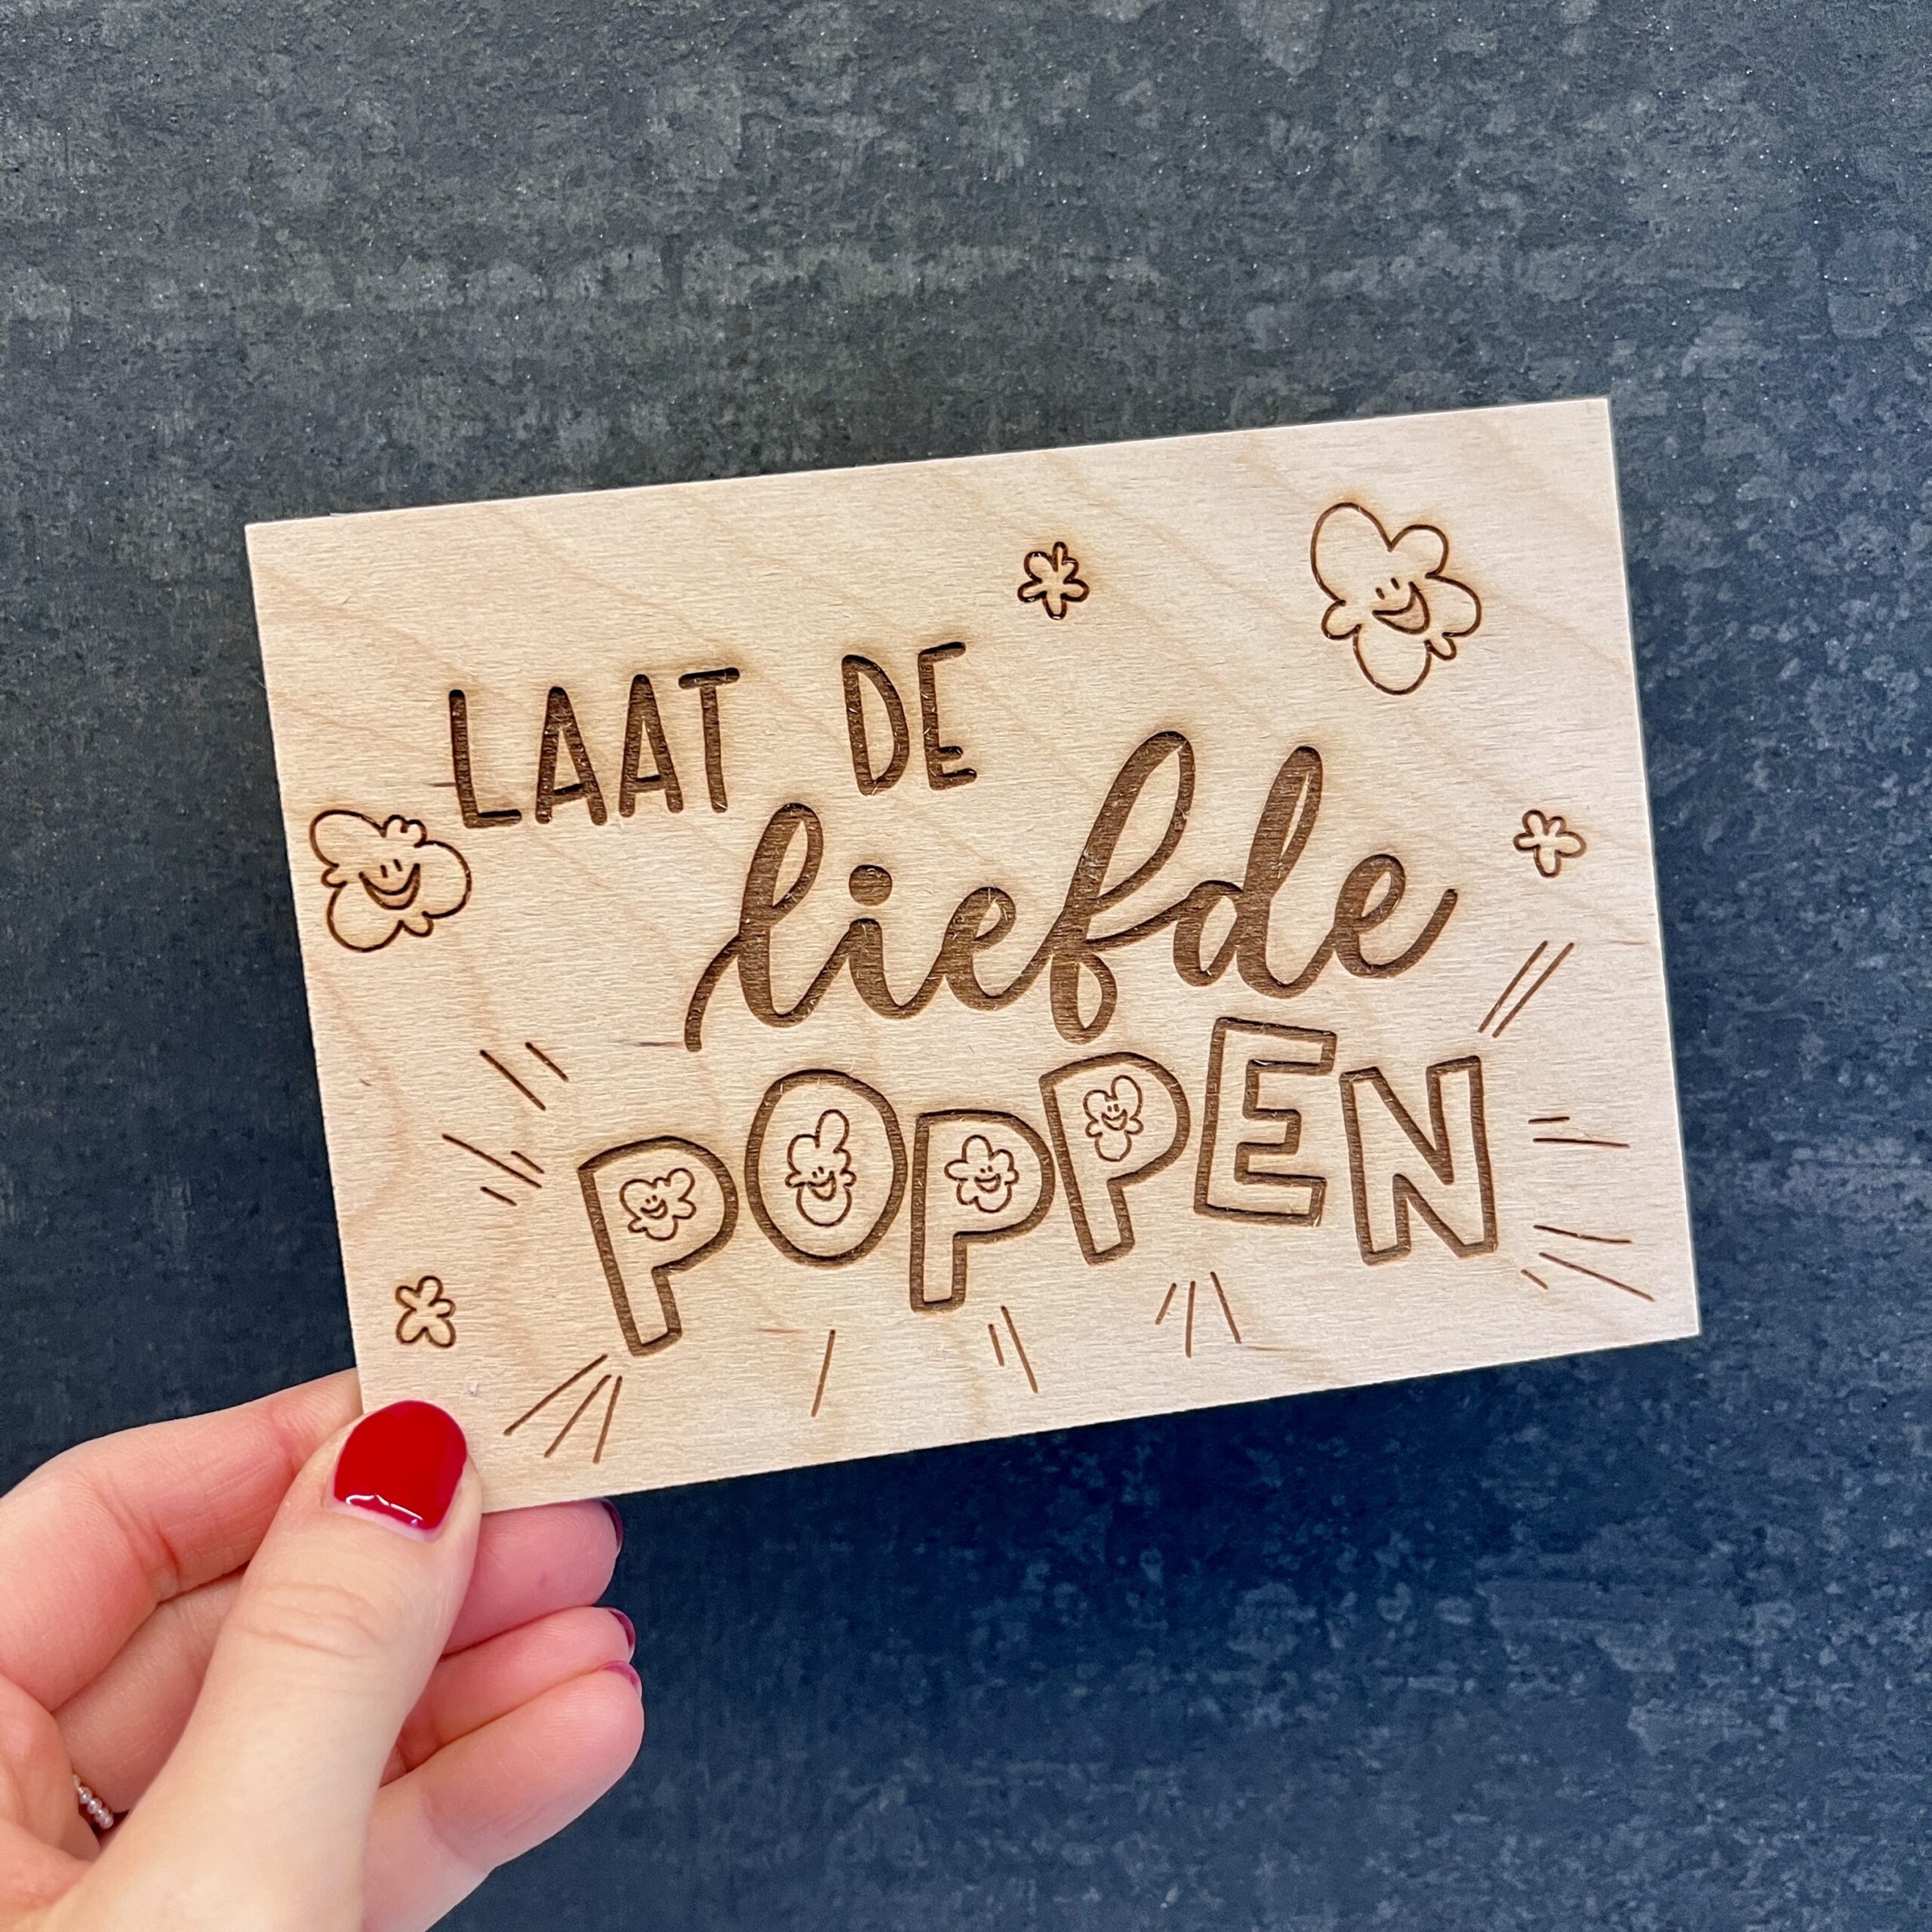 LAAT DE
liefde
POPPEN